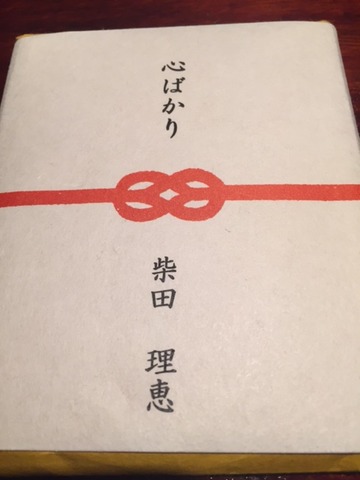 心ばかり
柴田 理恵